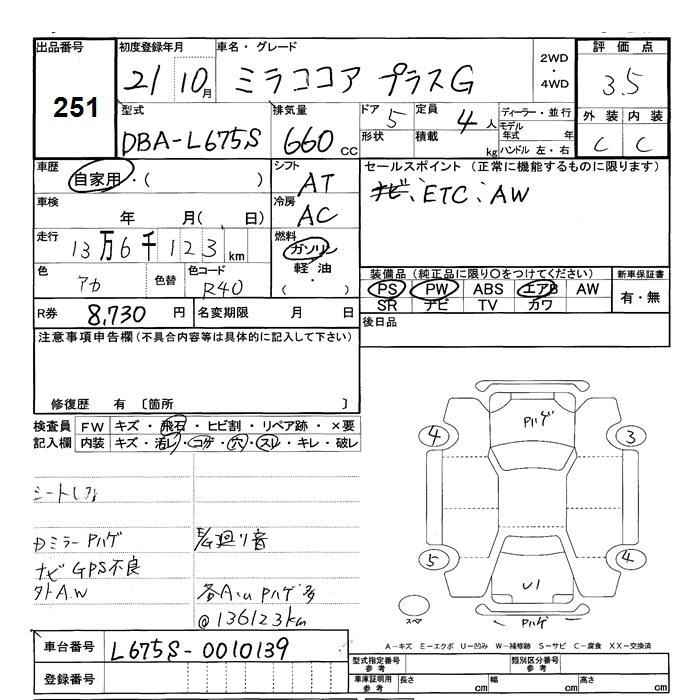 出品番号 初度登録年月 車名・グレード 2WD・4WD 評価点
251 21 10月 ミラココア プラスG 3.5
型式 排気量 ドア 5 定員 4人 ディーラー・並行 外装 内装
DBA-L675S 660 CC 形状 積載 kg モデル年式 年 C C
ハンドル 左・右
車歴 シフト セールスポイント (正常に機能するものに限ります)
自家用・( ) AT ナビ:ETC:AW
車検 年 月( 日) 冷房 AC
走行 13万6千123km 燃料 ガソリン
軽油・( )
色 アカ 色替 色コード R40
装備品(純正品に限り○をつけてください) 新車保証書
PS PW ABS エアB AW 有・無
SR ナビ TV カワ
R券 8,730円 名変期限 月 日 後日品
注意事項申告欄(不具合内容等は具体的に記入して下さい)
修復歴 有 〔箇所 〕
検査員 FW キズ・飛石・ヒビ割・リペア跡・×要
記入欄 内装 キズ・汚レ・コゲ・穴・スレ・キレ・破レ
Pハゲ
4 3
シートしみ
DミラーPハゲ E/G廻り音
ナビGPS不良
5 4
外A.W 各A.W Pハゲ多
@136123km
U1
スペア Pハゲ
車台番号 L675S-0010139
A-キズ E-エクボ U-凹み W-補修跡 S-サビ C-腐食 XX-交換済
登録番号
型式指定番号 参考 類別区分番号 参考
車庫証明用 参考 長さ cm 幅 cm 高さ cm